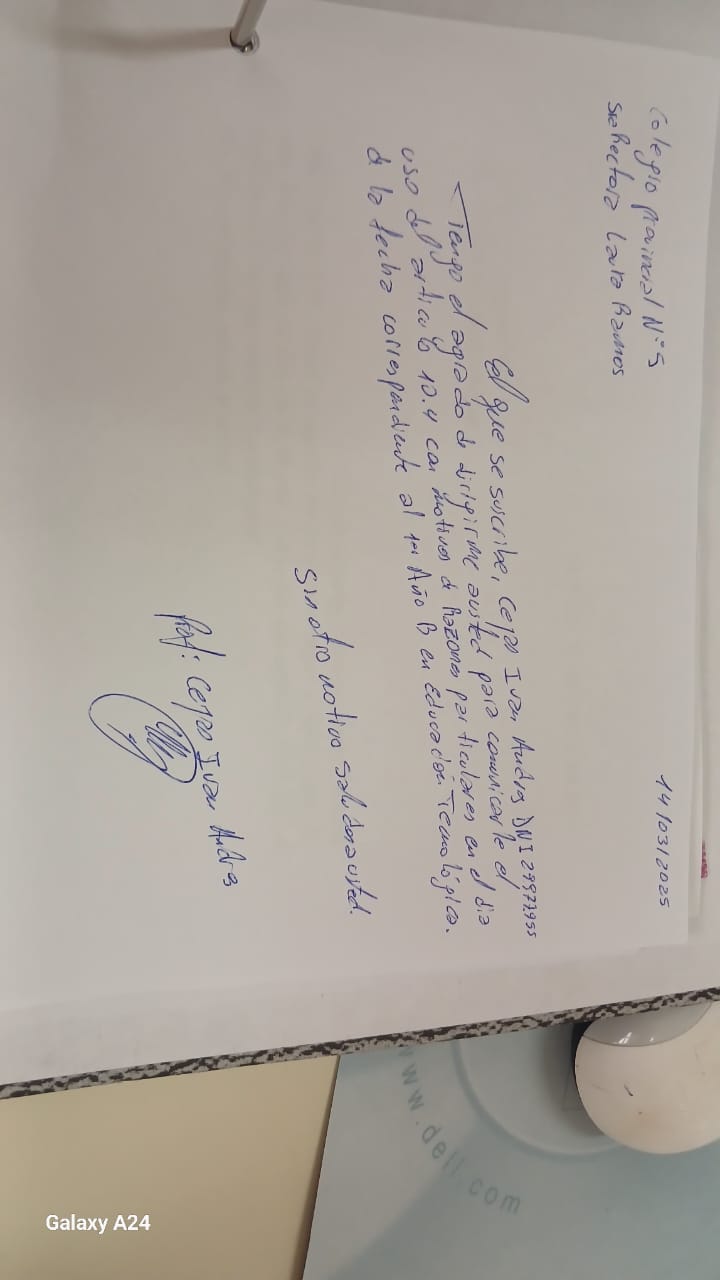 14/03/2025
Colegio provincial N°5
Sra Rectora Laura Ramos
El que se suscribe, Cejas Ivan Andres DNI
Tengo el agrado de dirigirme a usted para comunicarle el
uso del articulo 10.4 con motivos de Razones particulares en el dia
de la fecha correspondiente al 1er Año B en Educación Tecnológica.
Sin otro motivo saludo a usted.
Prof: Cejas Ivan Andres
www.dell.com
Galaxy A24